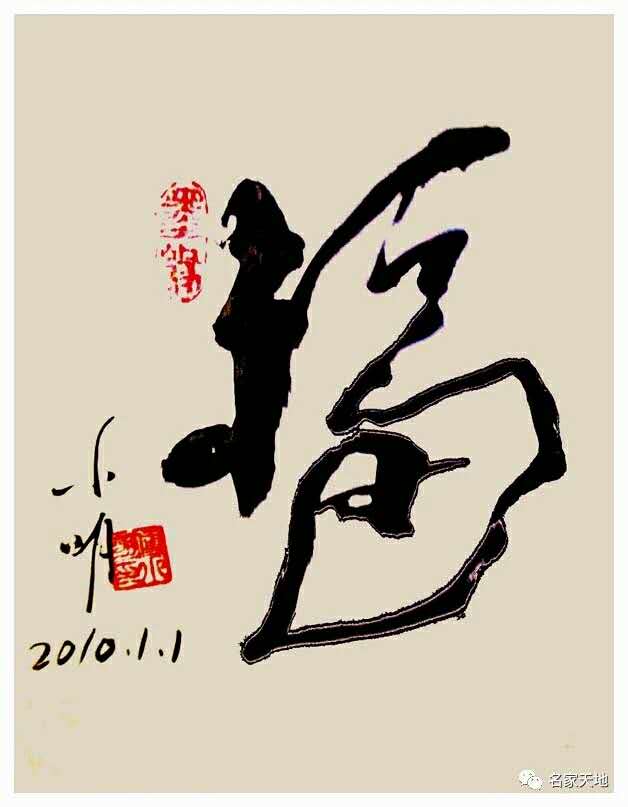 福
小明
2010.1.1
名家天地